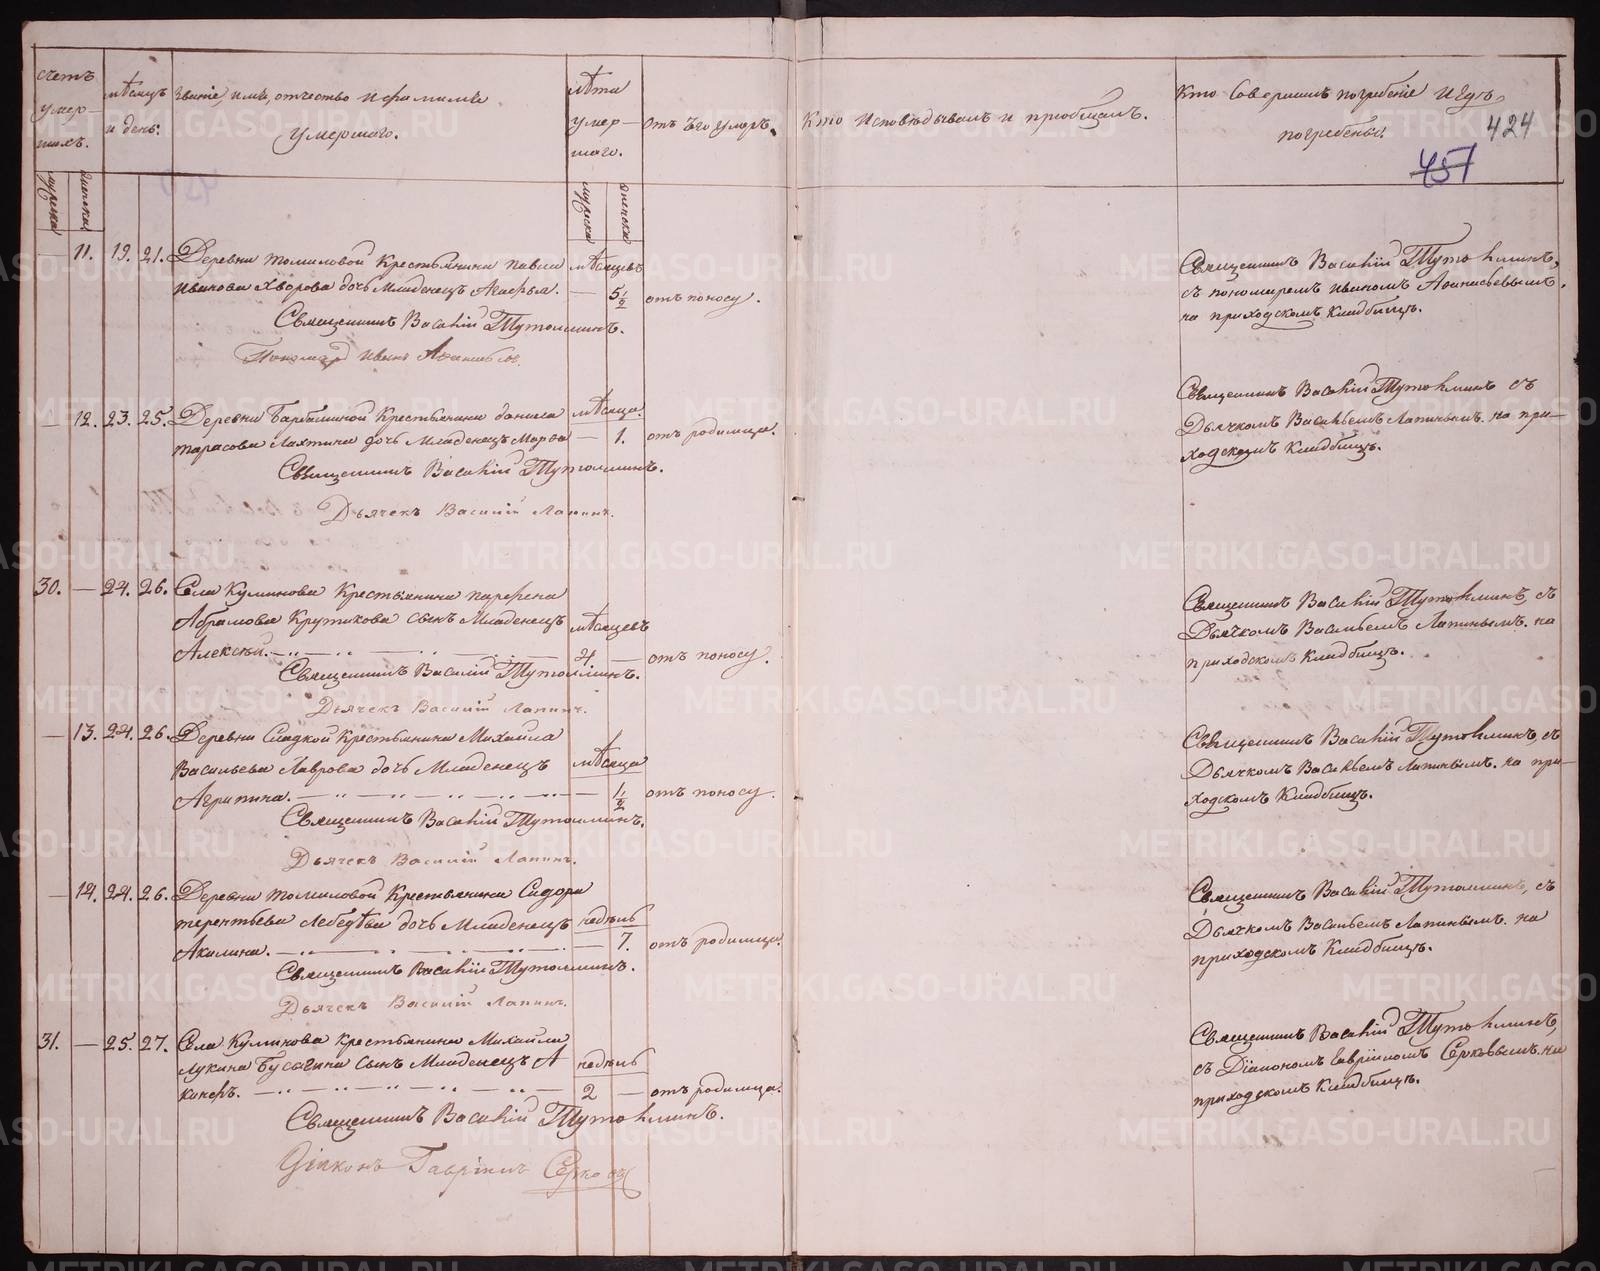 Счетъ умер-шихъ.
мѣсяцъ и день.
Званіе, имя, отчество и фамилія умершаго.
лѣта умер-шаго.
Отъ чего умеръ.
Кто исповѣдывалъ и пріобщалъ.
Кто совершалъ погребеніе и гдѣ погребены.
424
457
мужеска
женска
мужеска
женска
— 11. 19. 21. Деревни Томиловой крестьянина Павла мѣсяцевъ
Иванова Хворова дочь младенецъ Агафья. — 5 1/2 отъ поносу.
Священникъ Василій Тутолминъ.
Пономарь Иванъ Афанасьевъ.
Священникъ Василій Тутолминъ,
съ пономаремъ Иваномъ Афанасьевымъ,
на приходскомъ кладбищѣ.
— 12. 23. 25. Деревни Барабиной крестьянина Данила мѣсяца.
Тарасова Лахтина дочь младенецъ Марфа — 1. отъ родимца.
Священникъ Василій Тутолминъ.
Дьячекъ Василій Лапинъ.
Священникъ Василій Тутолминъ съ
Дьячкомъ Васильемъ Лапинымъ. на при-
ходскомъ кладбищѣ.
30. — 24. 26. Села Куликова крестьянина Парфена
Абрамова Крутикова сынъ младенецъ мѣсяцевъ
Алексѣй. 4. — отъ поносу.
Священникъ Василій Тутолминъ.
Дьячекъ Василій Лапинъ.
Священникъ Василій Тутолминъ, съ
Дьячкомъ Васильемъ Лапинымъ. на
приходскомъ кладбищѣ.
— 13. 24. 26. Деревни Сладкой крестьянина Михайла
Васильева Лаврова дочь младенецъ мѣсяца
Агрипина. — 1/2 отъ поносу.
Священникъ Василій Тутолминъ.
Дьячекъ Василій Лапинъ.
Священникъ Василій Тутолминъ, съ
Дьячкомъ Васильемъ Лапинымъ. на при-
ходскомъ кладбищѣ.
— 14. 24. 26. Деревни Томиловой крестьянина Сидора
Терентьева Лебедѣва дочь младенецъ недѣль
Акилина. — 7. отъ родимца.
Священникъ Василій Тутолминъ.
Дьячекъ Василій Лапинъ.
Священникъ Василій Тутолминъ, съ
Дьячкомъ Васильемъ Лапинымъ. на
приходскомъ кладбищѣ.
31. — 25. 27. Села Куликова крестьянина Михайла
Лукина Бусыгина сынъ младенецъ А недѣль
кинфъ. 2 — отъ родимца.
Священникъ Василій Тутолминъ.
Діаконъ Гавріилъ Серковъ
Священникъ Василій Тутолминъ,
съ Діакономъ Гавріиломъ Серковымъ. на
приходскомъ кладбищѣ.
METRIKI.GASO-URAL.RU